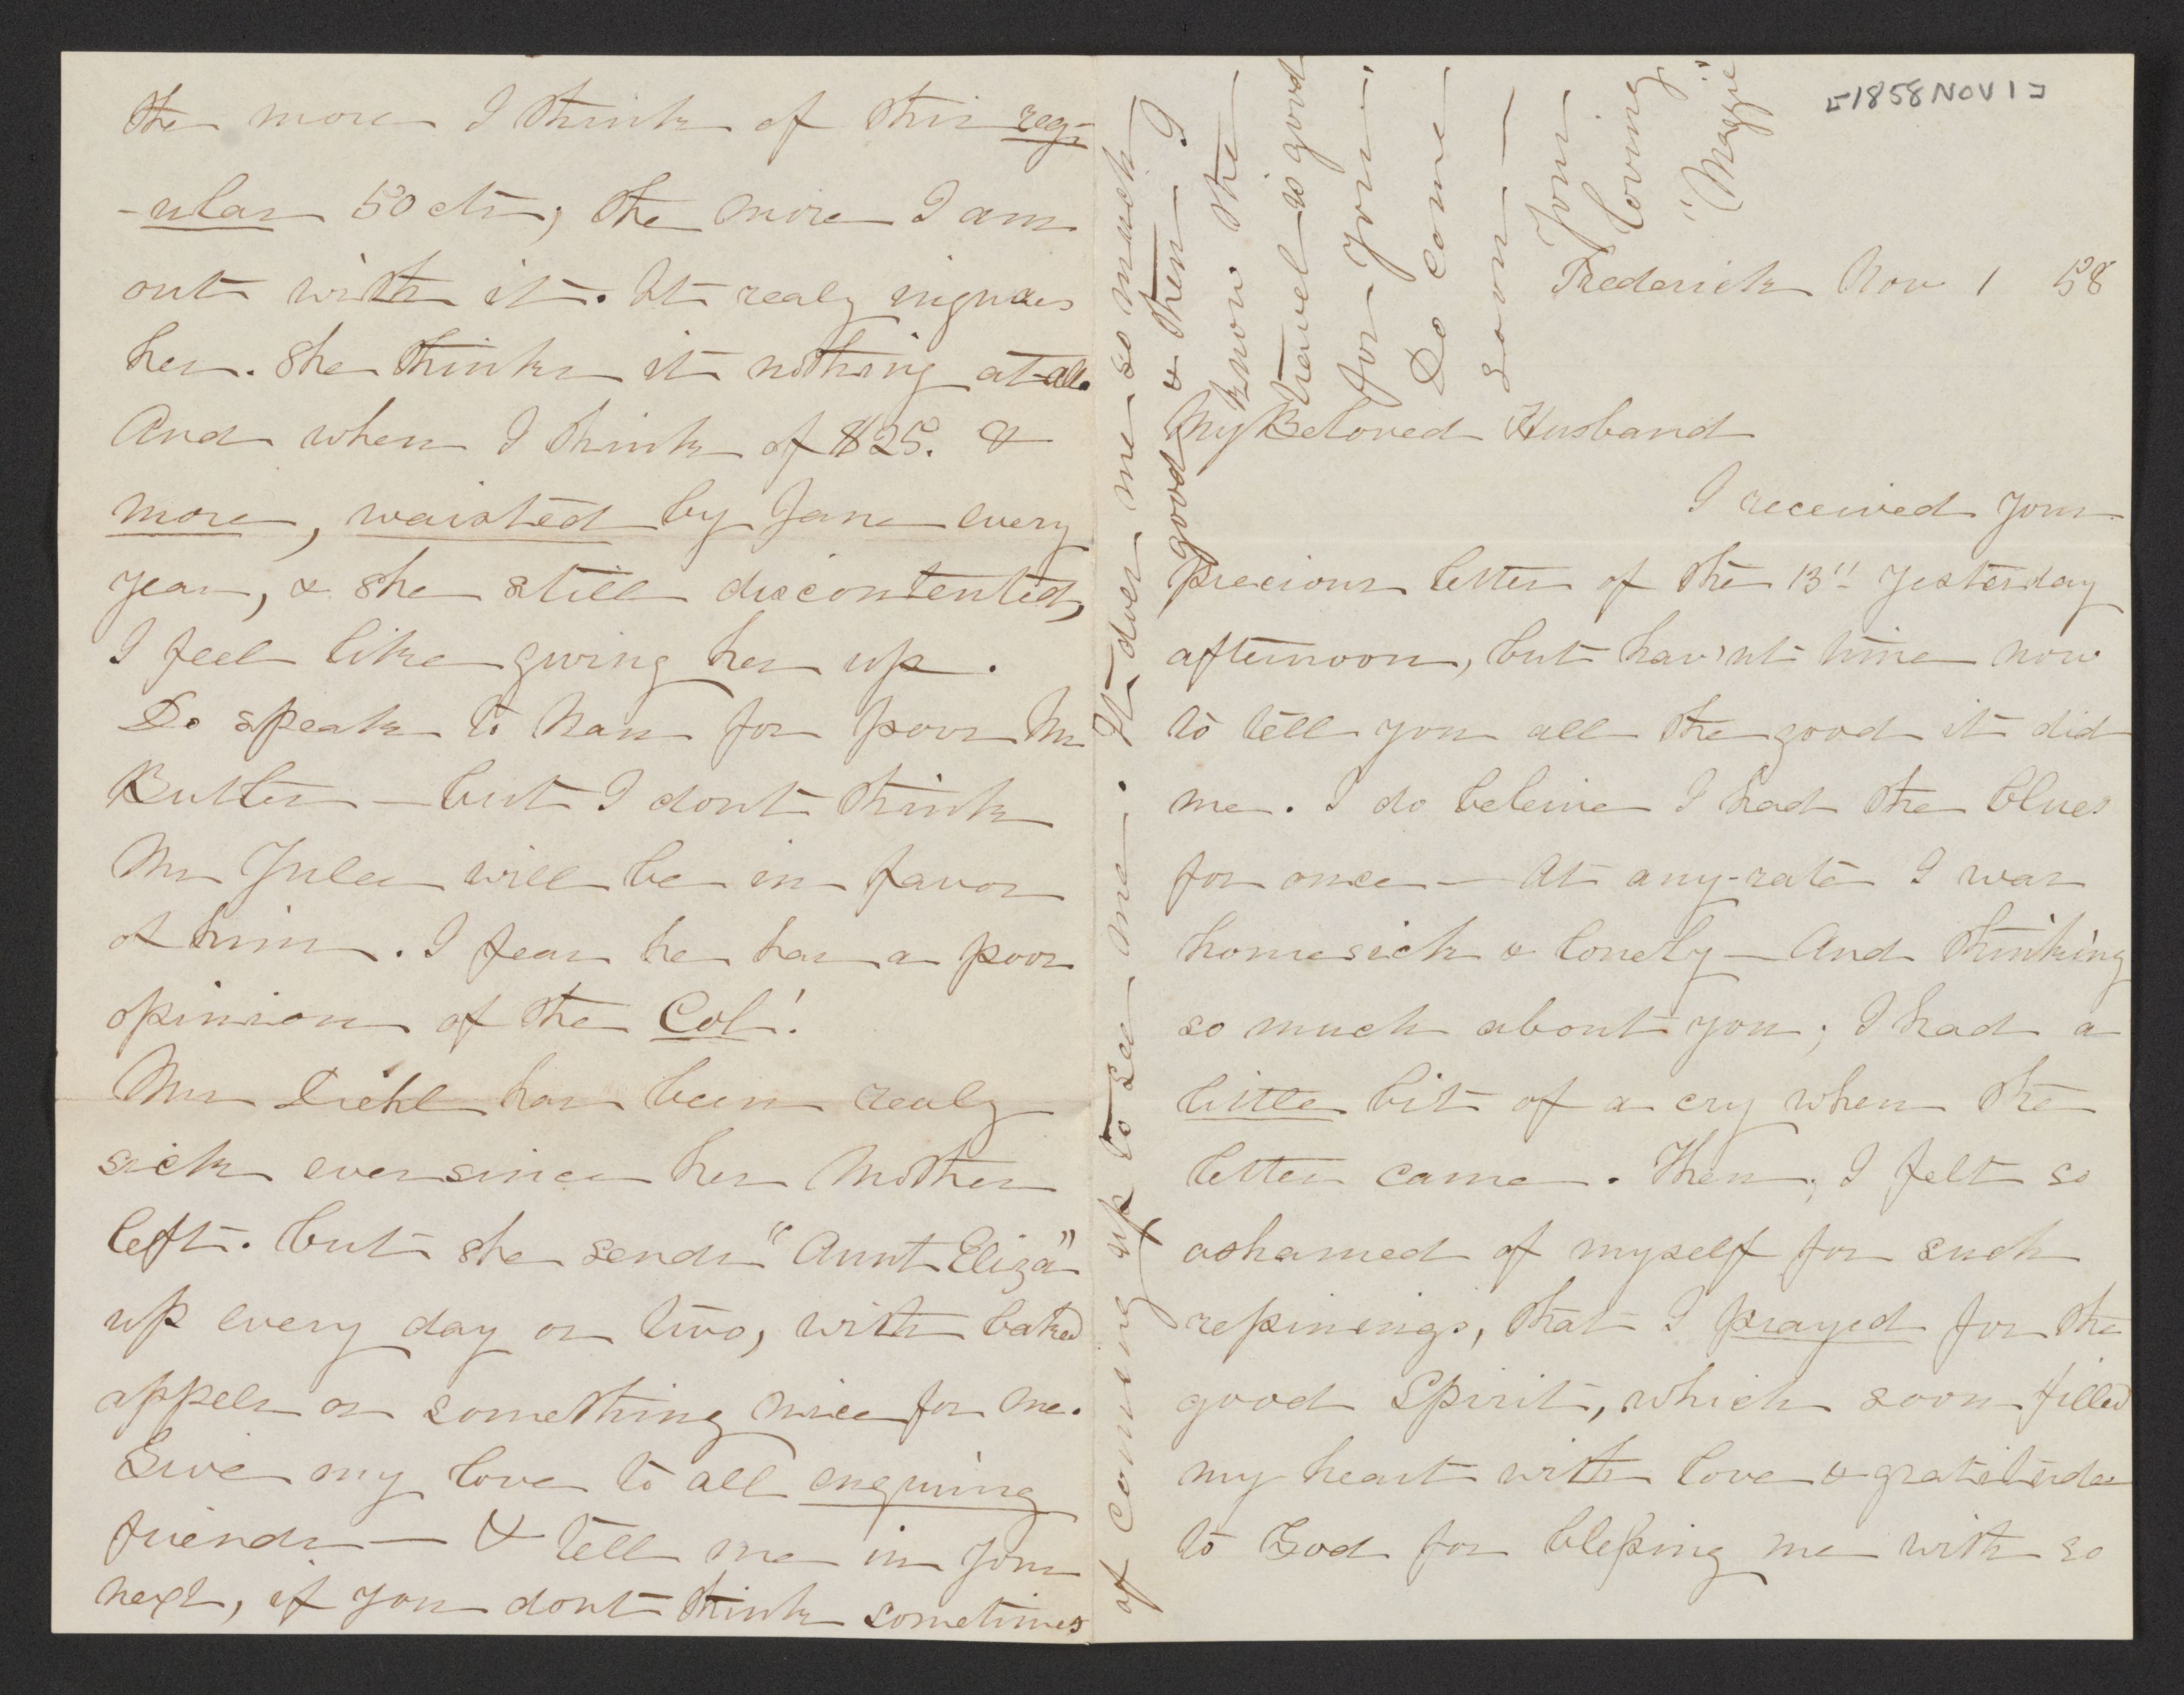 the more I think of this reg-
-ular 50 cts, the more I am
out with it. It realy injures
her. She thinks it nothing at all.
And when I think of $25. &
more, waisted by Jane every
year, & she still discontented,
I feel like giving her up.
Do speak to Nan for poor Mr
Butler — but I dont think
Mr Yulee will be in favor
of him. I fear he has a poor
opinion of the Col!
Mrs Diehl has been realy
sick ever since her Mother
left. but she sends "Aunt Eliza"
up every day or two, with baked
appels or something nice for me.
Give my love to all enquiring
friends — & tell me in your
next, if you dont think sometimes
of coming up to see me. It does me so much
good & then I
know the
travel is good
for you.
Do come
soon —
Your
loving
"Maggie"
[1858 NOV 1]
Frederick Nov 1 58
My Beloved Husband
I received your
precious letter of the 13" yesterday
afternoon, but hav'nt time now
to tell you all the good it did
me. I do beleive I had the blues
for once — At any-rate I was
homesick & lonely — And thinking
so much about you; I had a
little bit of a cry when the
letter came. Then, I felt so
ashamed of myself for such
repinings, that I prayed for the
good Spirit, which soon filled
my heart with love & gratitude
to God for blessing me with so